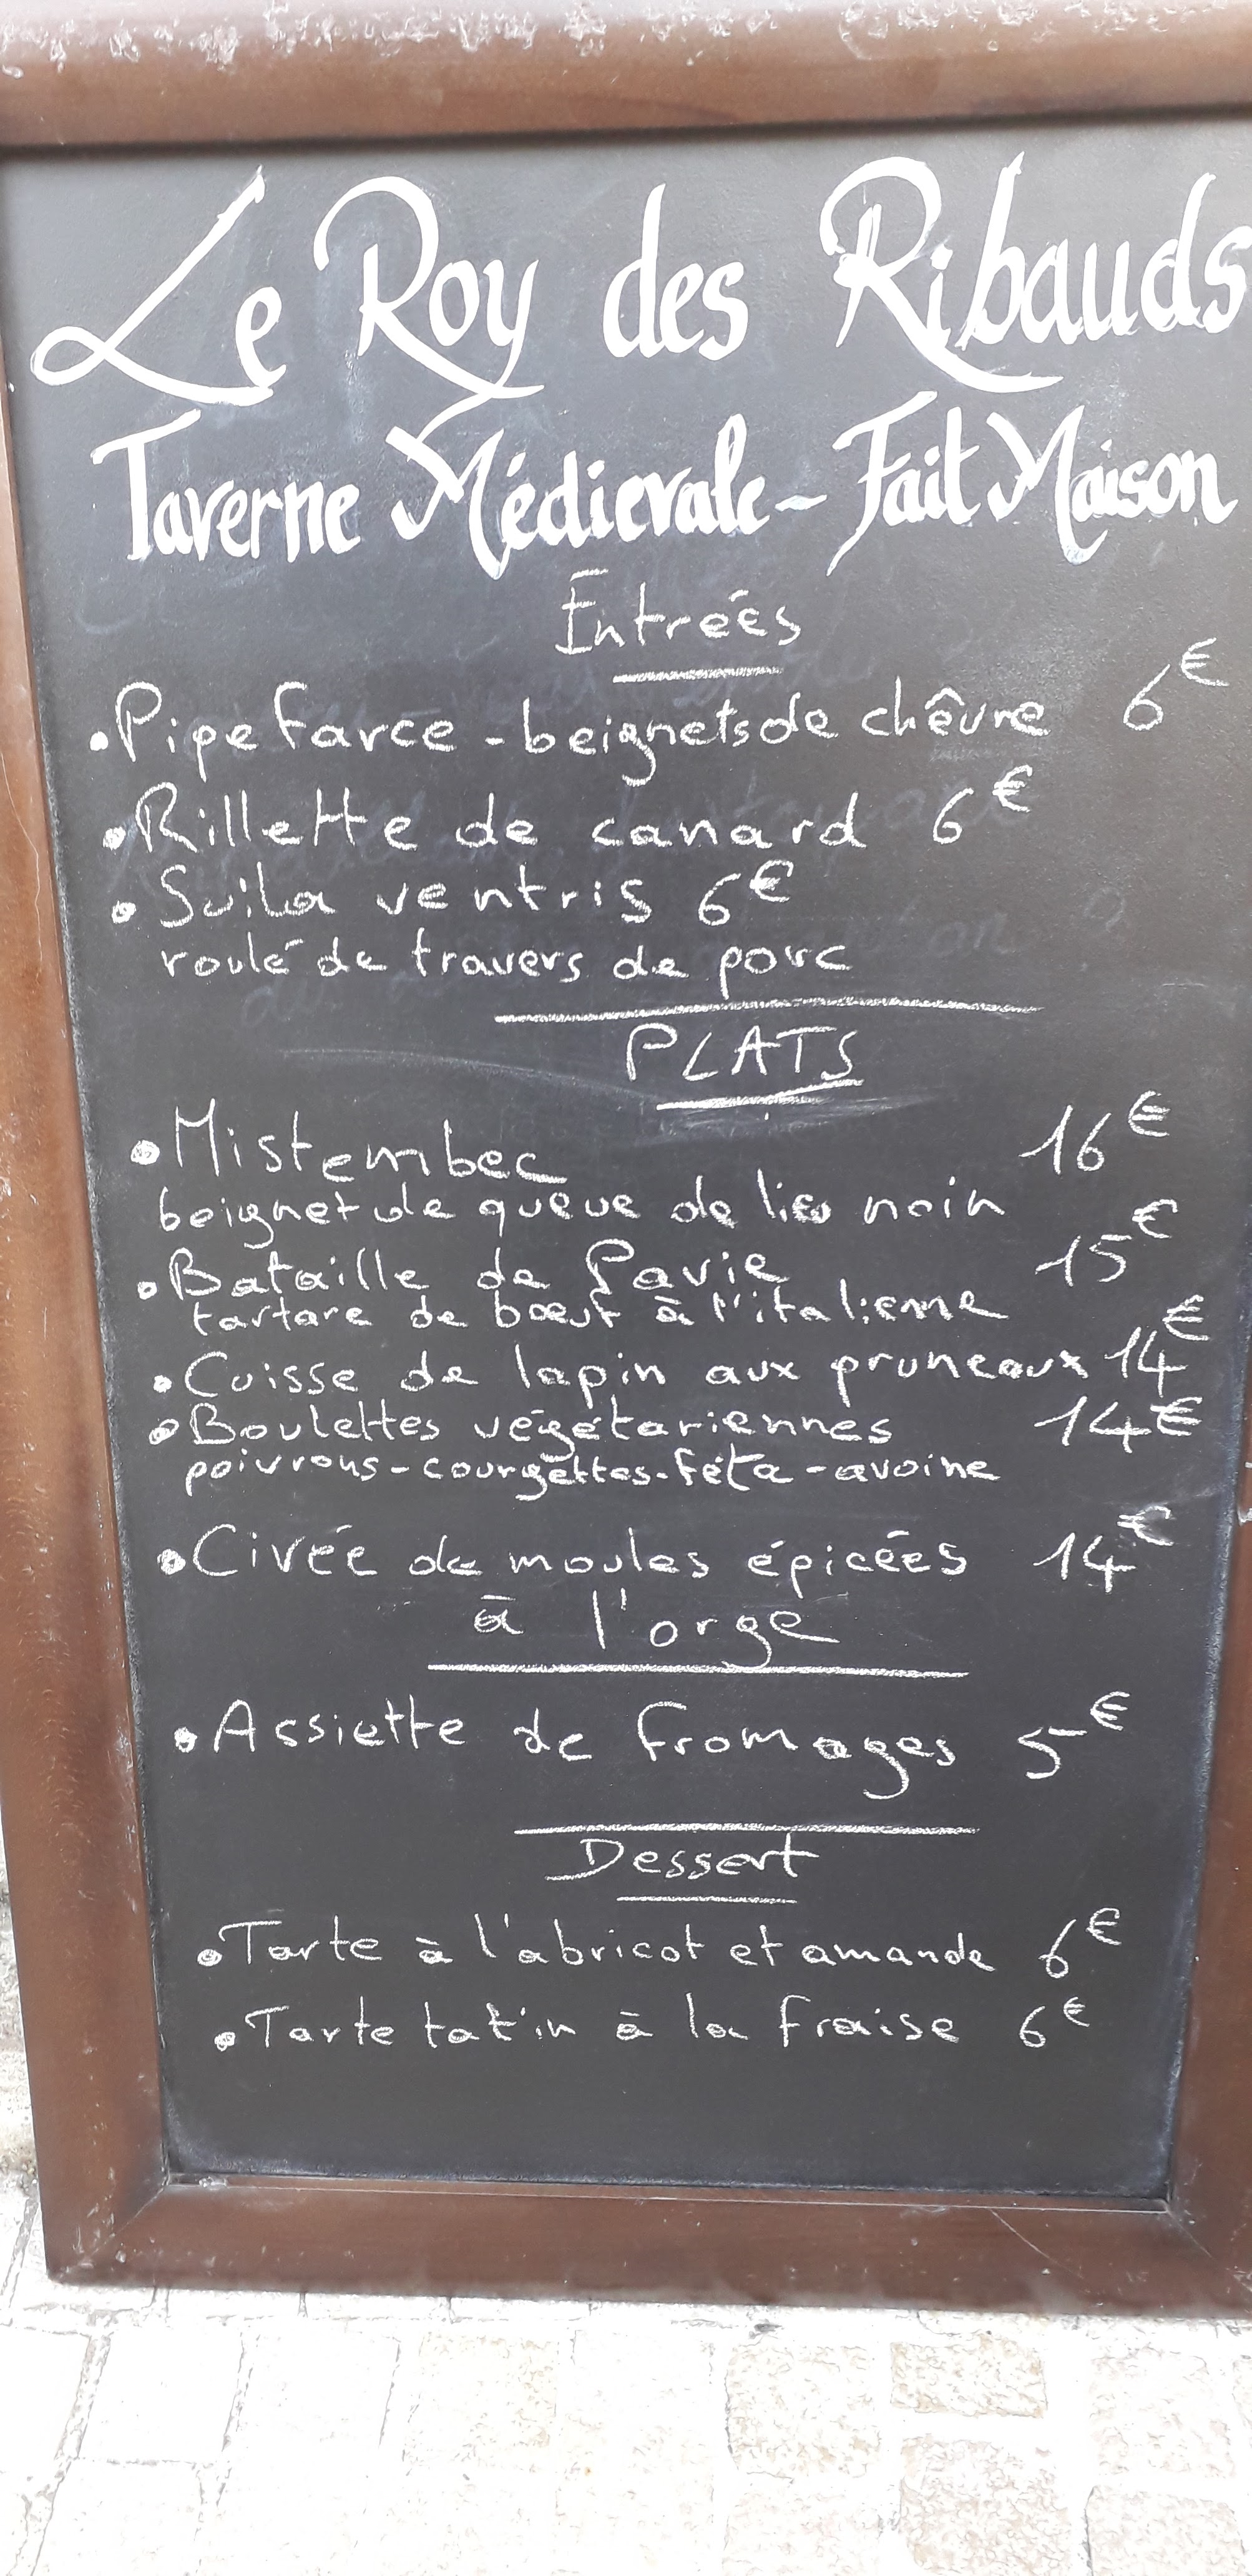 Le Roy des Ribauds
Taverne Médievale - Fait Maison
Entrées
• Pipe farce - beignets de chêvre 6€
• Rillette de canard 6€
• Suila ventris 6€
roulé de travers de porc
PLATS
• Mistembec 16€
beignet de queue de lieu noir
• Bataille de Pavie 15€
tartare de bœuf à l'italienne
• Cuisse de lapin aux pruneaux 14€
• Boulettes végétariennes 14€
poivrons - courgettes - féta - avoine
• Civée de moules épicées 14€
à l'orge
• Assiette de fromages 5€
Dessert
• Tarte à l'abricot et amande 6€
• Tarte tatin à la fraise 6€